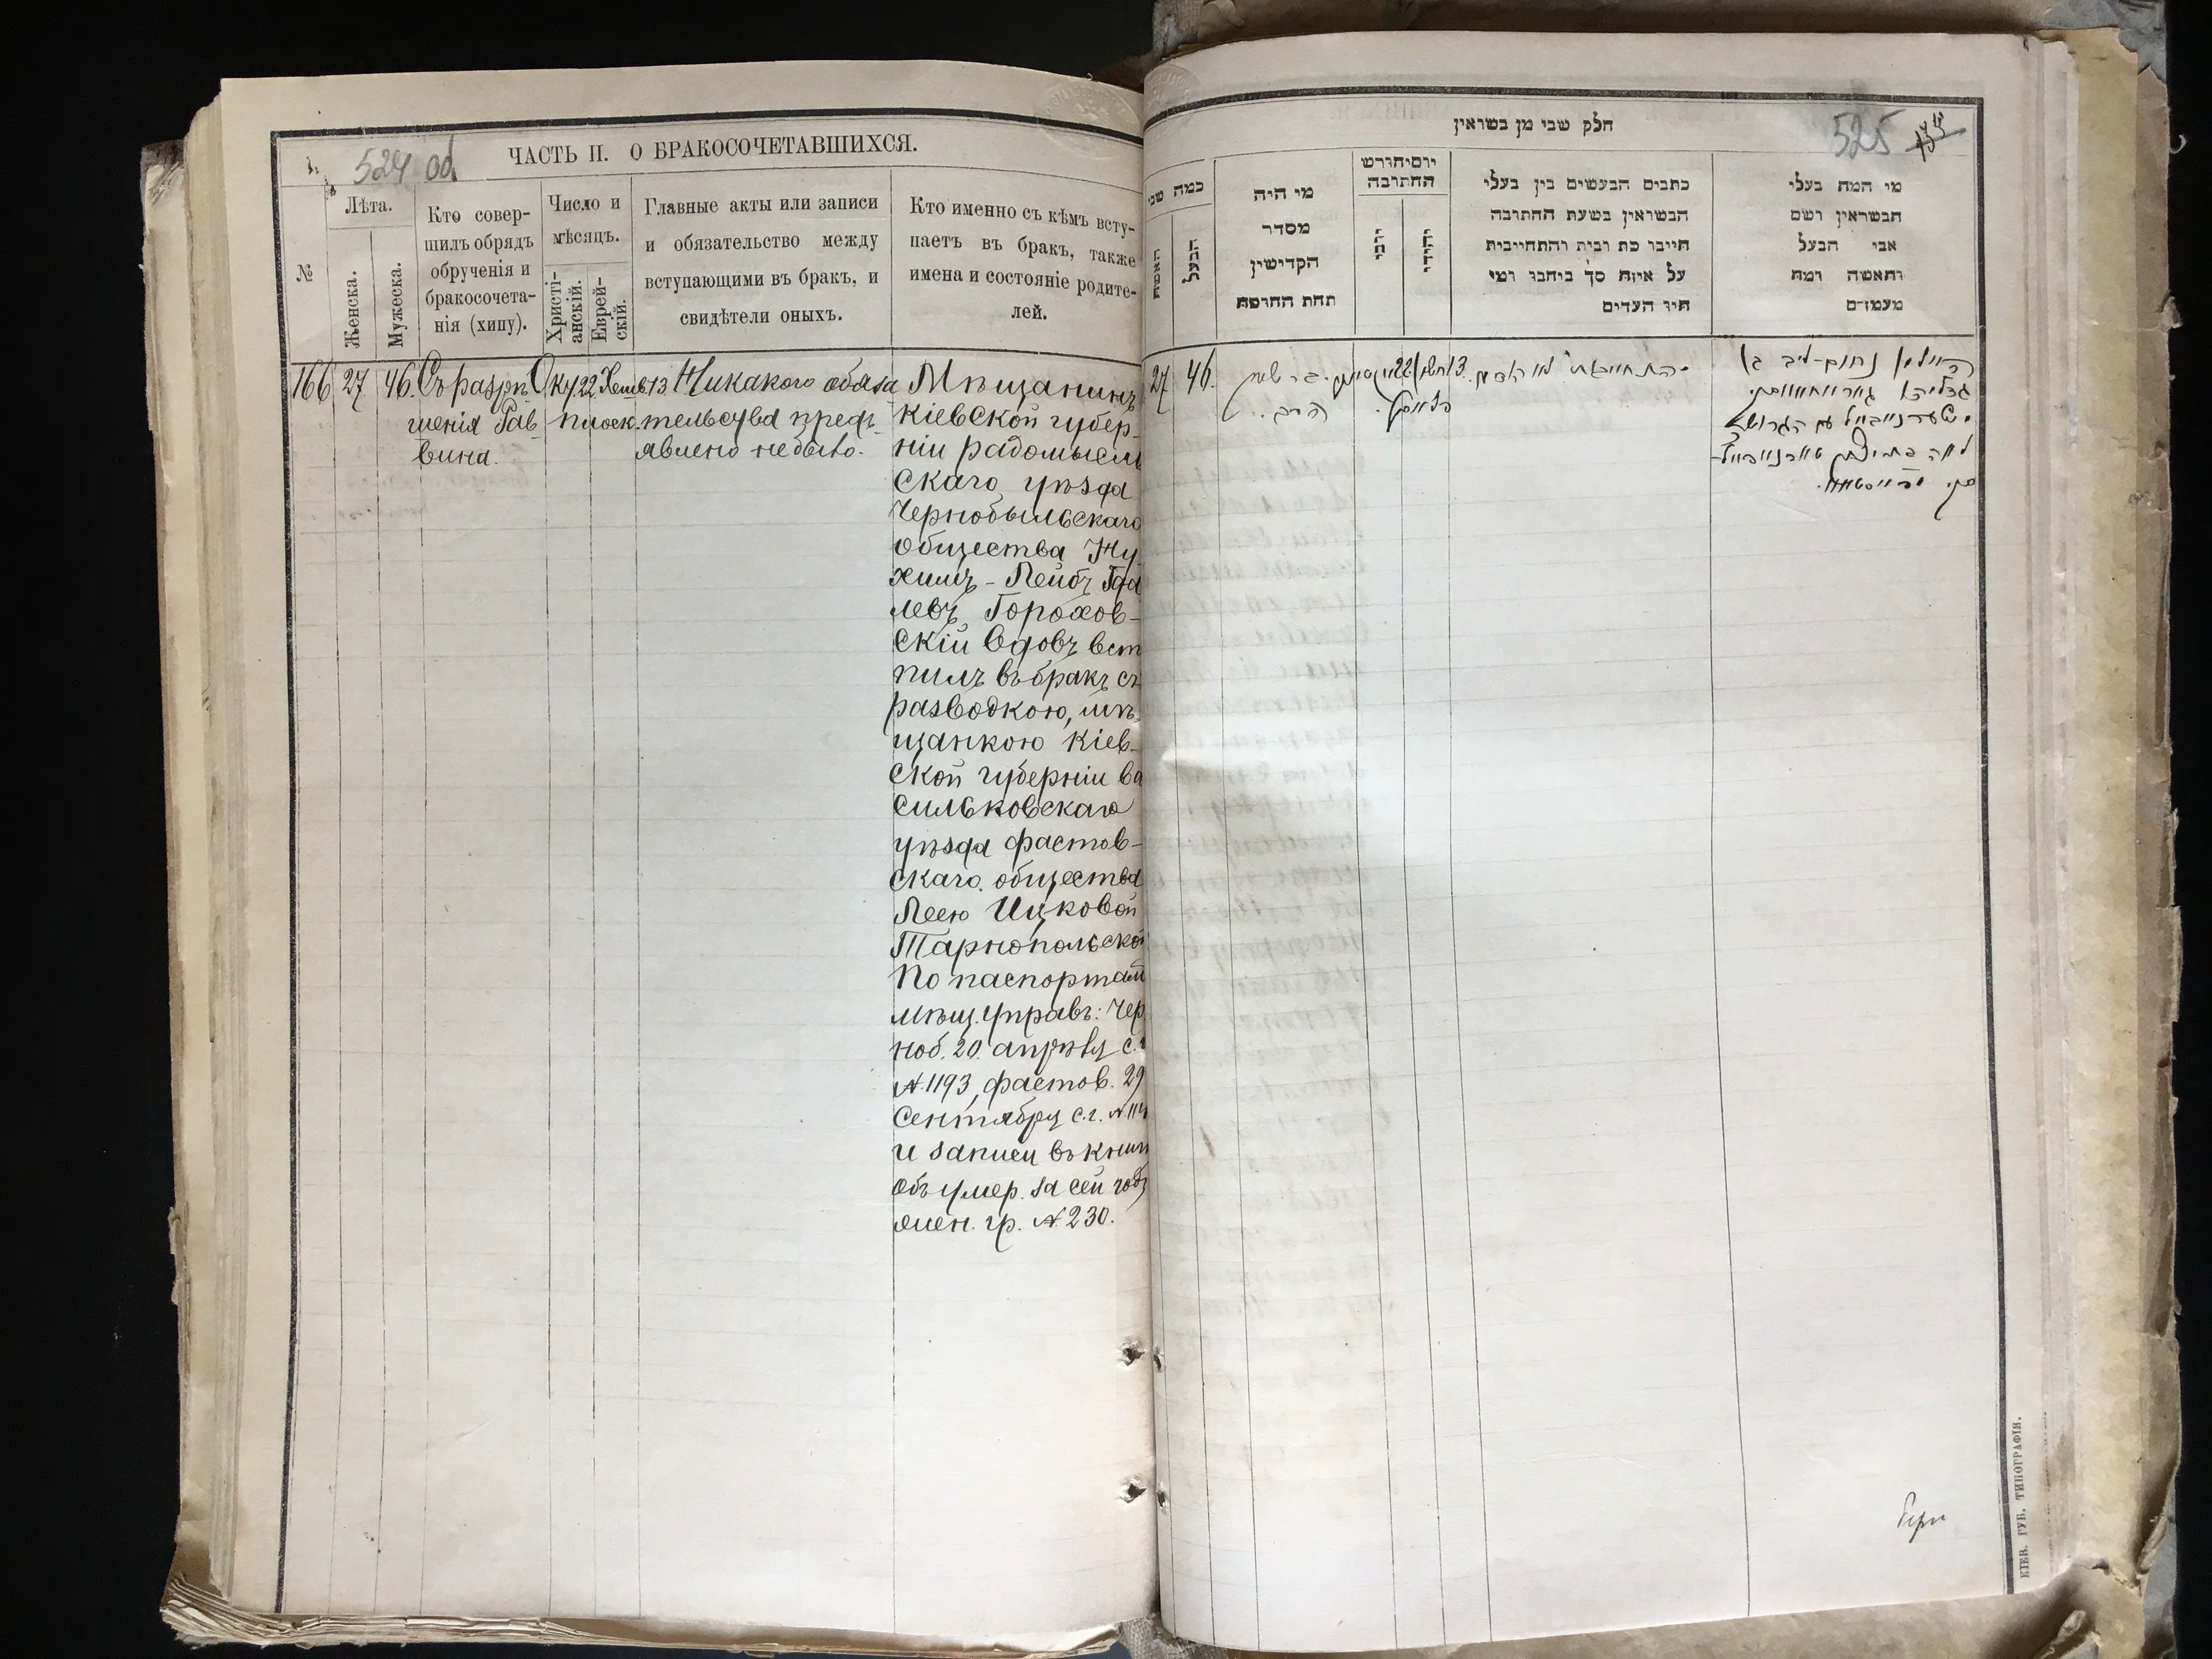 524 об
ЧАСТЬ II. О БРАКОСОЧЕТАВШИХСЯ.
№
Лѣта.
Женска.
Мужеска.
Кто совер-
шилъ обрядъ
обрученія и
бракосочета-
нія (хипу).
Число и
мѣсяцъ.
Христі-
анскій.
Еврей-
скій.
Главные акты или записи
и обязательство между
вступающими въ бракъ, и
свидѣтели оныхъ.
Кто именно съ кѣмъ всту-
паетъ въ бракъ, также
имена и состояніе родите-
лей.
166
27
46.
Съ разрѣ
шенія Рав
вина.
Окт. 22
Хешв. 13
плоск.
Никакого обяза
тельства предъ
явлено не было.
Мѣщанинъ
Кіевской губер-
ніи радомысль
скаго уѣзда
Чернобыльскаго
общества Ну
химъ-Лейбъ Гда
левъ Горохов-
скій вдовъ вст
пилъ въ бракъ съ
разводкою, мѣ
щанкою Кіев-
ской губерніи ва
сильковскаго
уѣзда фастов-
скаго общества
Леею Ицковой
Тарнопольской
По паспортам
мѣщ. управъ: Чер
ноб. 20. апрѣля с.г
№ 1193, фастов. 29
Сентября с.г.
и записи въ книгѣ
объ умер. за сей годъ
жен. гр. № 230.
525
חלק שני מן בשואין
כמה שני
האשה
הבעל
מי היה
מסדר
הקדישין
תחת החופה
יום וחודש
החתונה
יוני
יהודי
כתבים הנעשים בין בעלי
הנשואין בשעת החתונה
חייבו כת ובית והתחייבית
על איזה סך ביחבו ומי
היו העדים
מי המה בעלי
הנשואין ושם
אבי הבעל
והאשה ומה
מעמדם
27
46.
הרב.
22
13
נחום-ליב בן
КІЕВ. ГУБ. ТИПОГРАФІЯ.